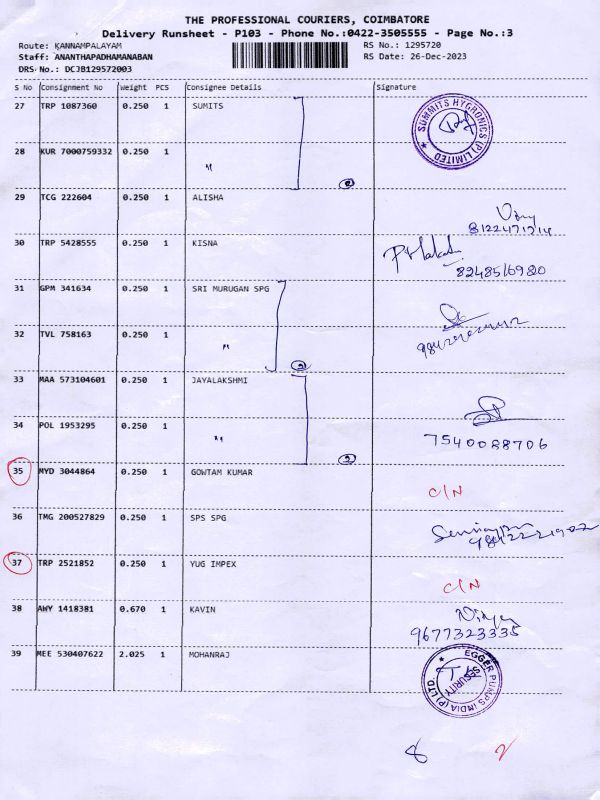 THE PROFESSIONAL COURIERS, COIMBATORE
Delivery Runsheet - P103 - Phone No.:0422-3505555 - Page No.:3
Route: KANNAMPALAYAM RS No.: 1295720
Staff: ANANTHAPADHAMANABAN RS Date: 26-Dec-2023
DRS No.: DCJB129572003
S No Consignment No Weight PCS Consignee Details Signature
27 TRP 1087360 0.250 1 SUMITS
SUMMITS HYGRONICS (P) LIMITED
28 KUR 7000759332 0.250 1 〃
2
29 TCG 222604 0.250 1 ALISHA
8122471214
30 TRP 5428555 0.250 1 KISNA
8248516980
31 GPM 341634 0.250 1 SRI MURUGAN SPG
32 TVL 758163 0.250 1 〃
2
33 MAA 573104601 0.250 1 JAYALAKSHMI
34 POL 1953295 0.250 1 〃
7540088706
2
35 MYD 3044864 0.250 1 GOWTAM KUMAR
C/N
36 TMG 200527829 0.250 1 SPS SPG
37 TRP 2521852 0.250 1 YUG IMPEX
C/N
38 AWY 1418381 0.670 1 KAVIN
9677323335
39 MEE 530407622 2.025 1 MOHANRAJ
EGGER PUMPS INDIA (P) LTD.
SECURITY
8 2